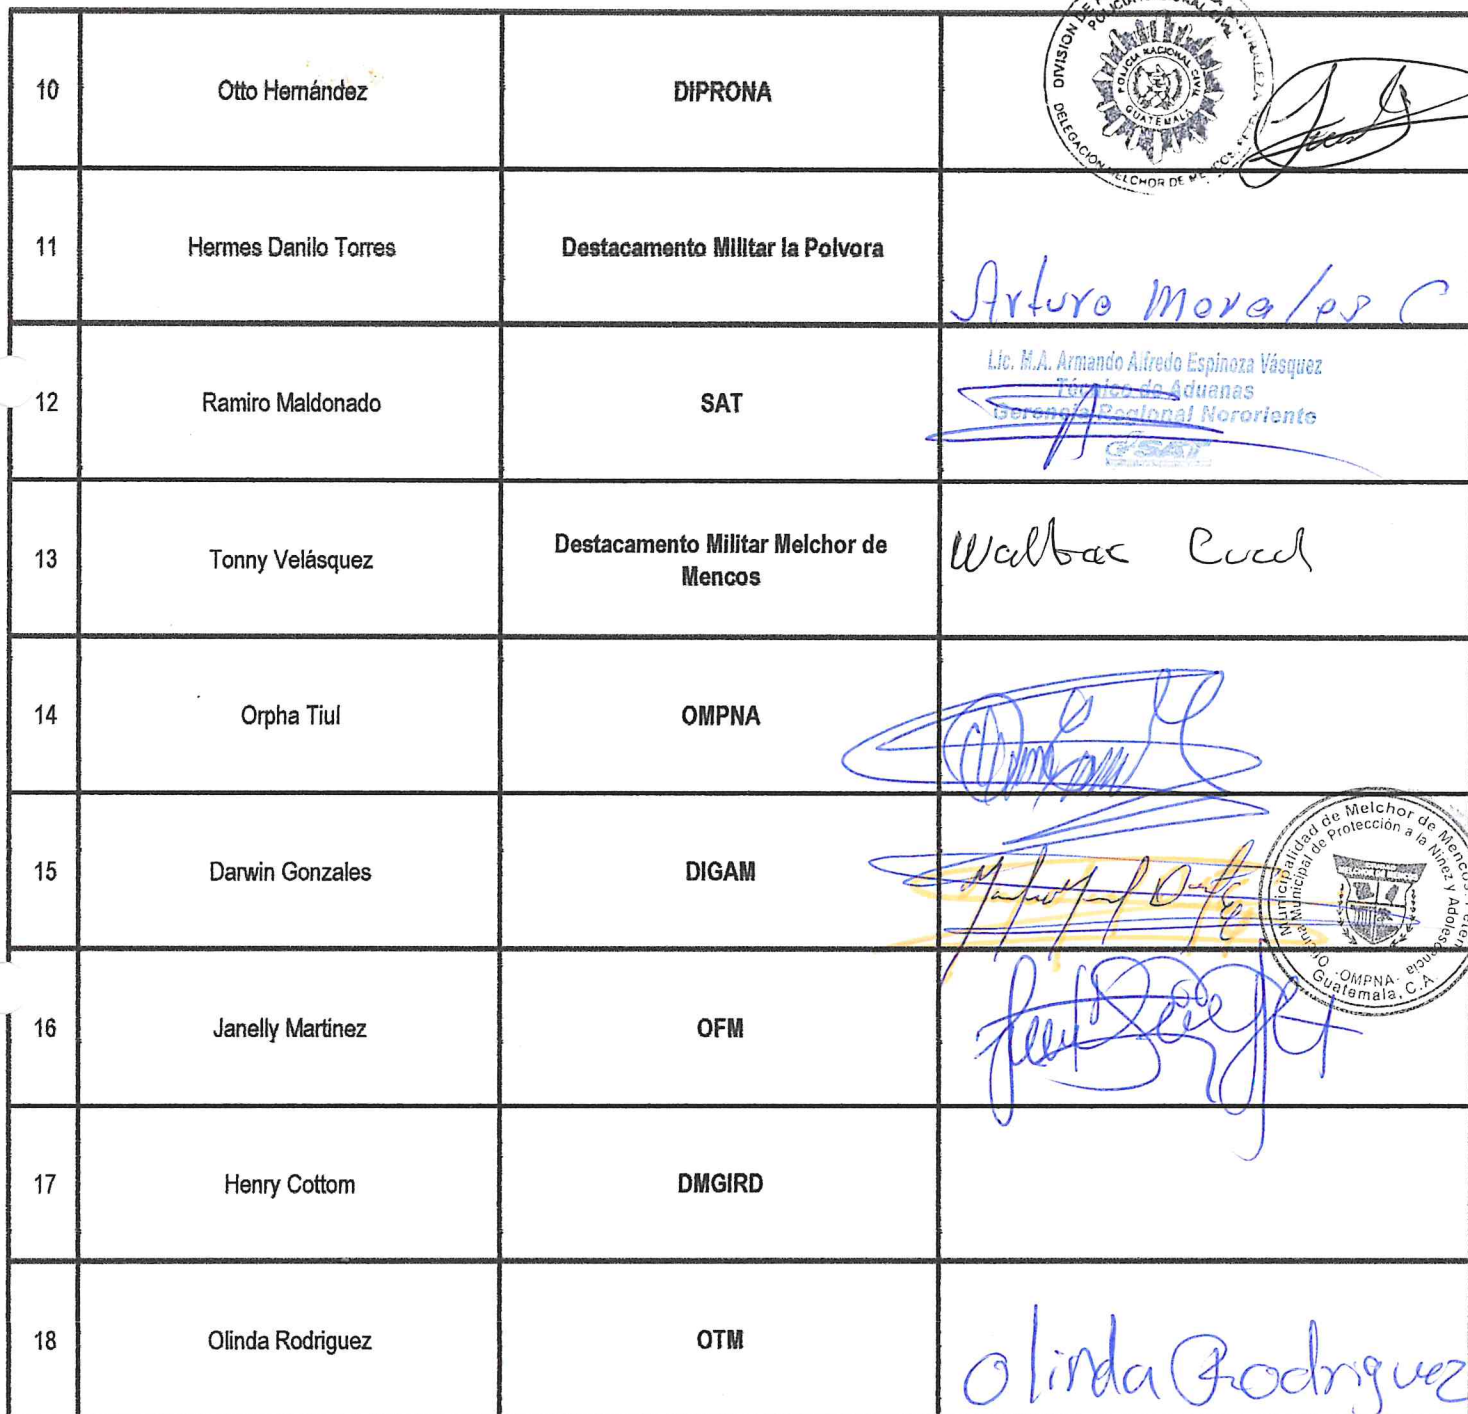 10 Otto Hernández DIPRONA
DIVISION DE
POLICIA NACIONAL CIVIL
GUATEMALA
DELEGACION MELCHOR DE
11 Hermes Danilo Torres Destacamento Militar la Polvora Arturo Morales C
12 Ramiro Maldonado SAT
Lic. M.A. Armando Alfredo Espinoza Vásquez
Técnico de Aduanas
Gerencia Regional Nororiente
SAT
13 Tonny Velásquez Destacamento Militar Melchor de
Mencos
14 Orpha Tiul OMPNA
15 Darwin Gonzales DIGAM
Municipalidad de Melchor de Mencos, Peten
Oficina Municipal de Protección a la Niñez y Adolescencia
-OMPNA-
Guatemala, C.A.
16 Janelly Martinez OFM
17 Henry Cottom DMGIRD
18 Olinda Rodriguez OTM Olinda Rodriguez